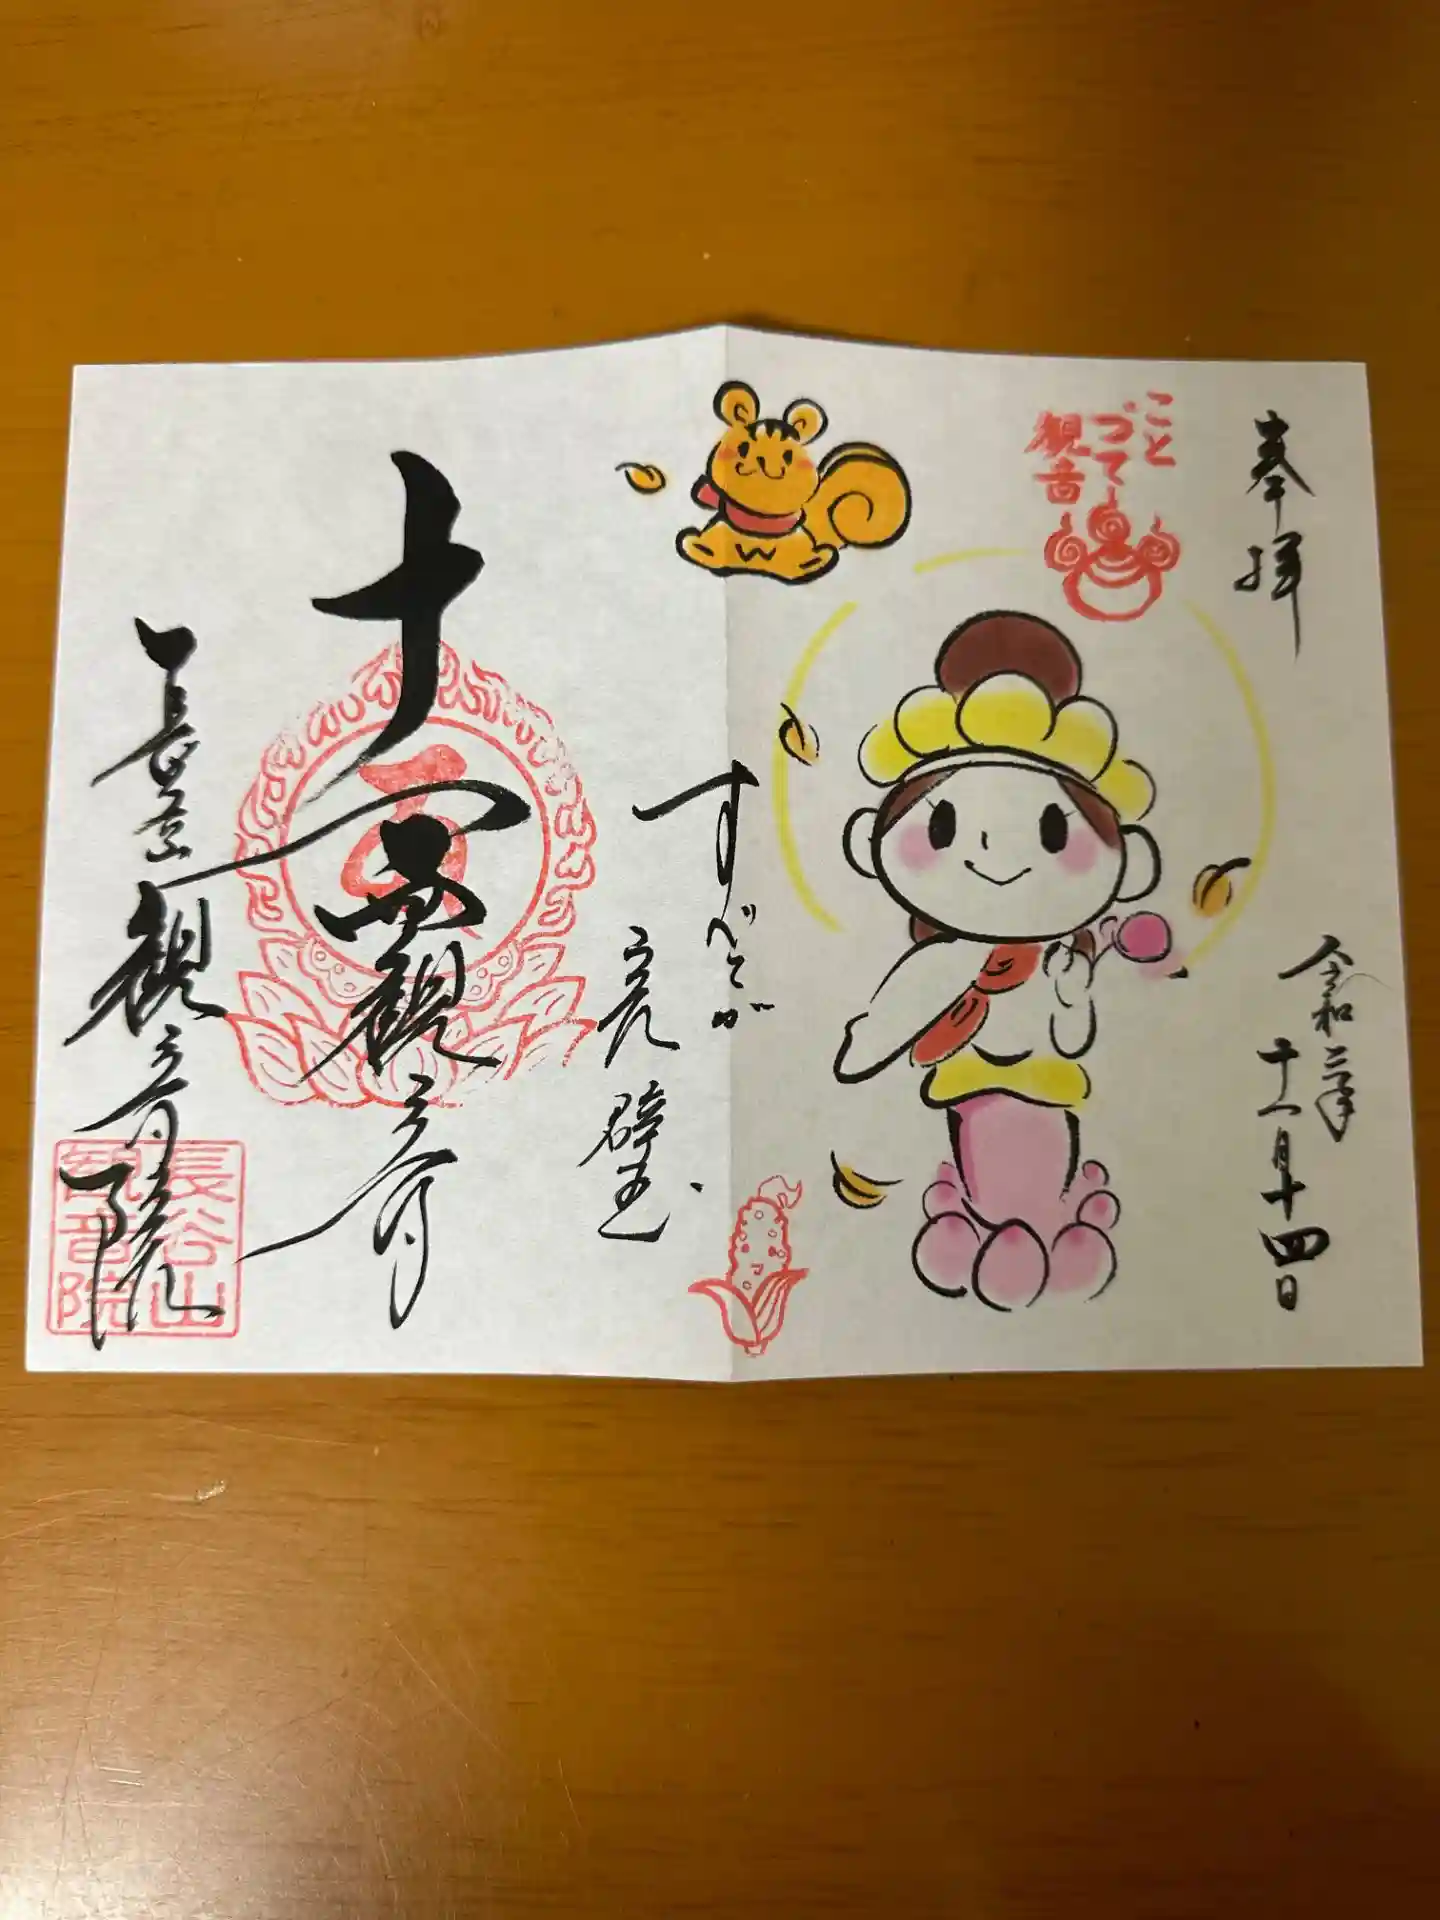 奉拝
令和三年
十一月十四日
こと
づて
観音
すべてが
完璧
十一面観音
長谷山
観音院
長谷山
観音院